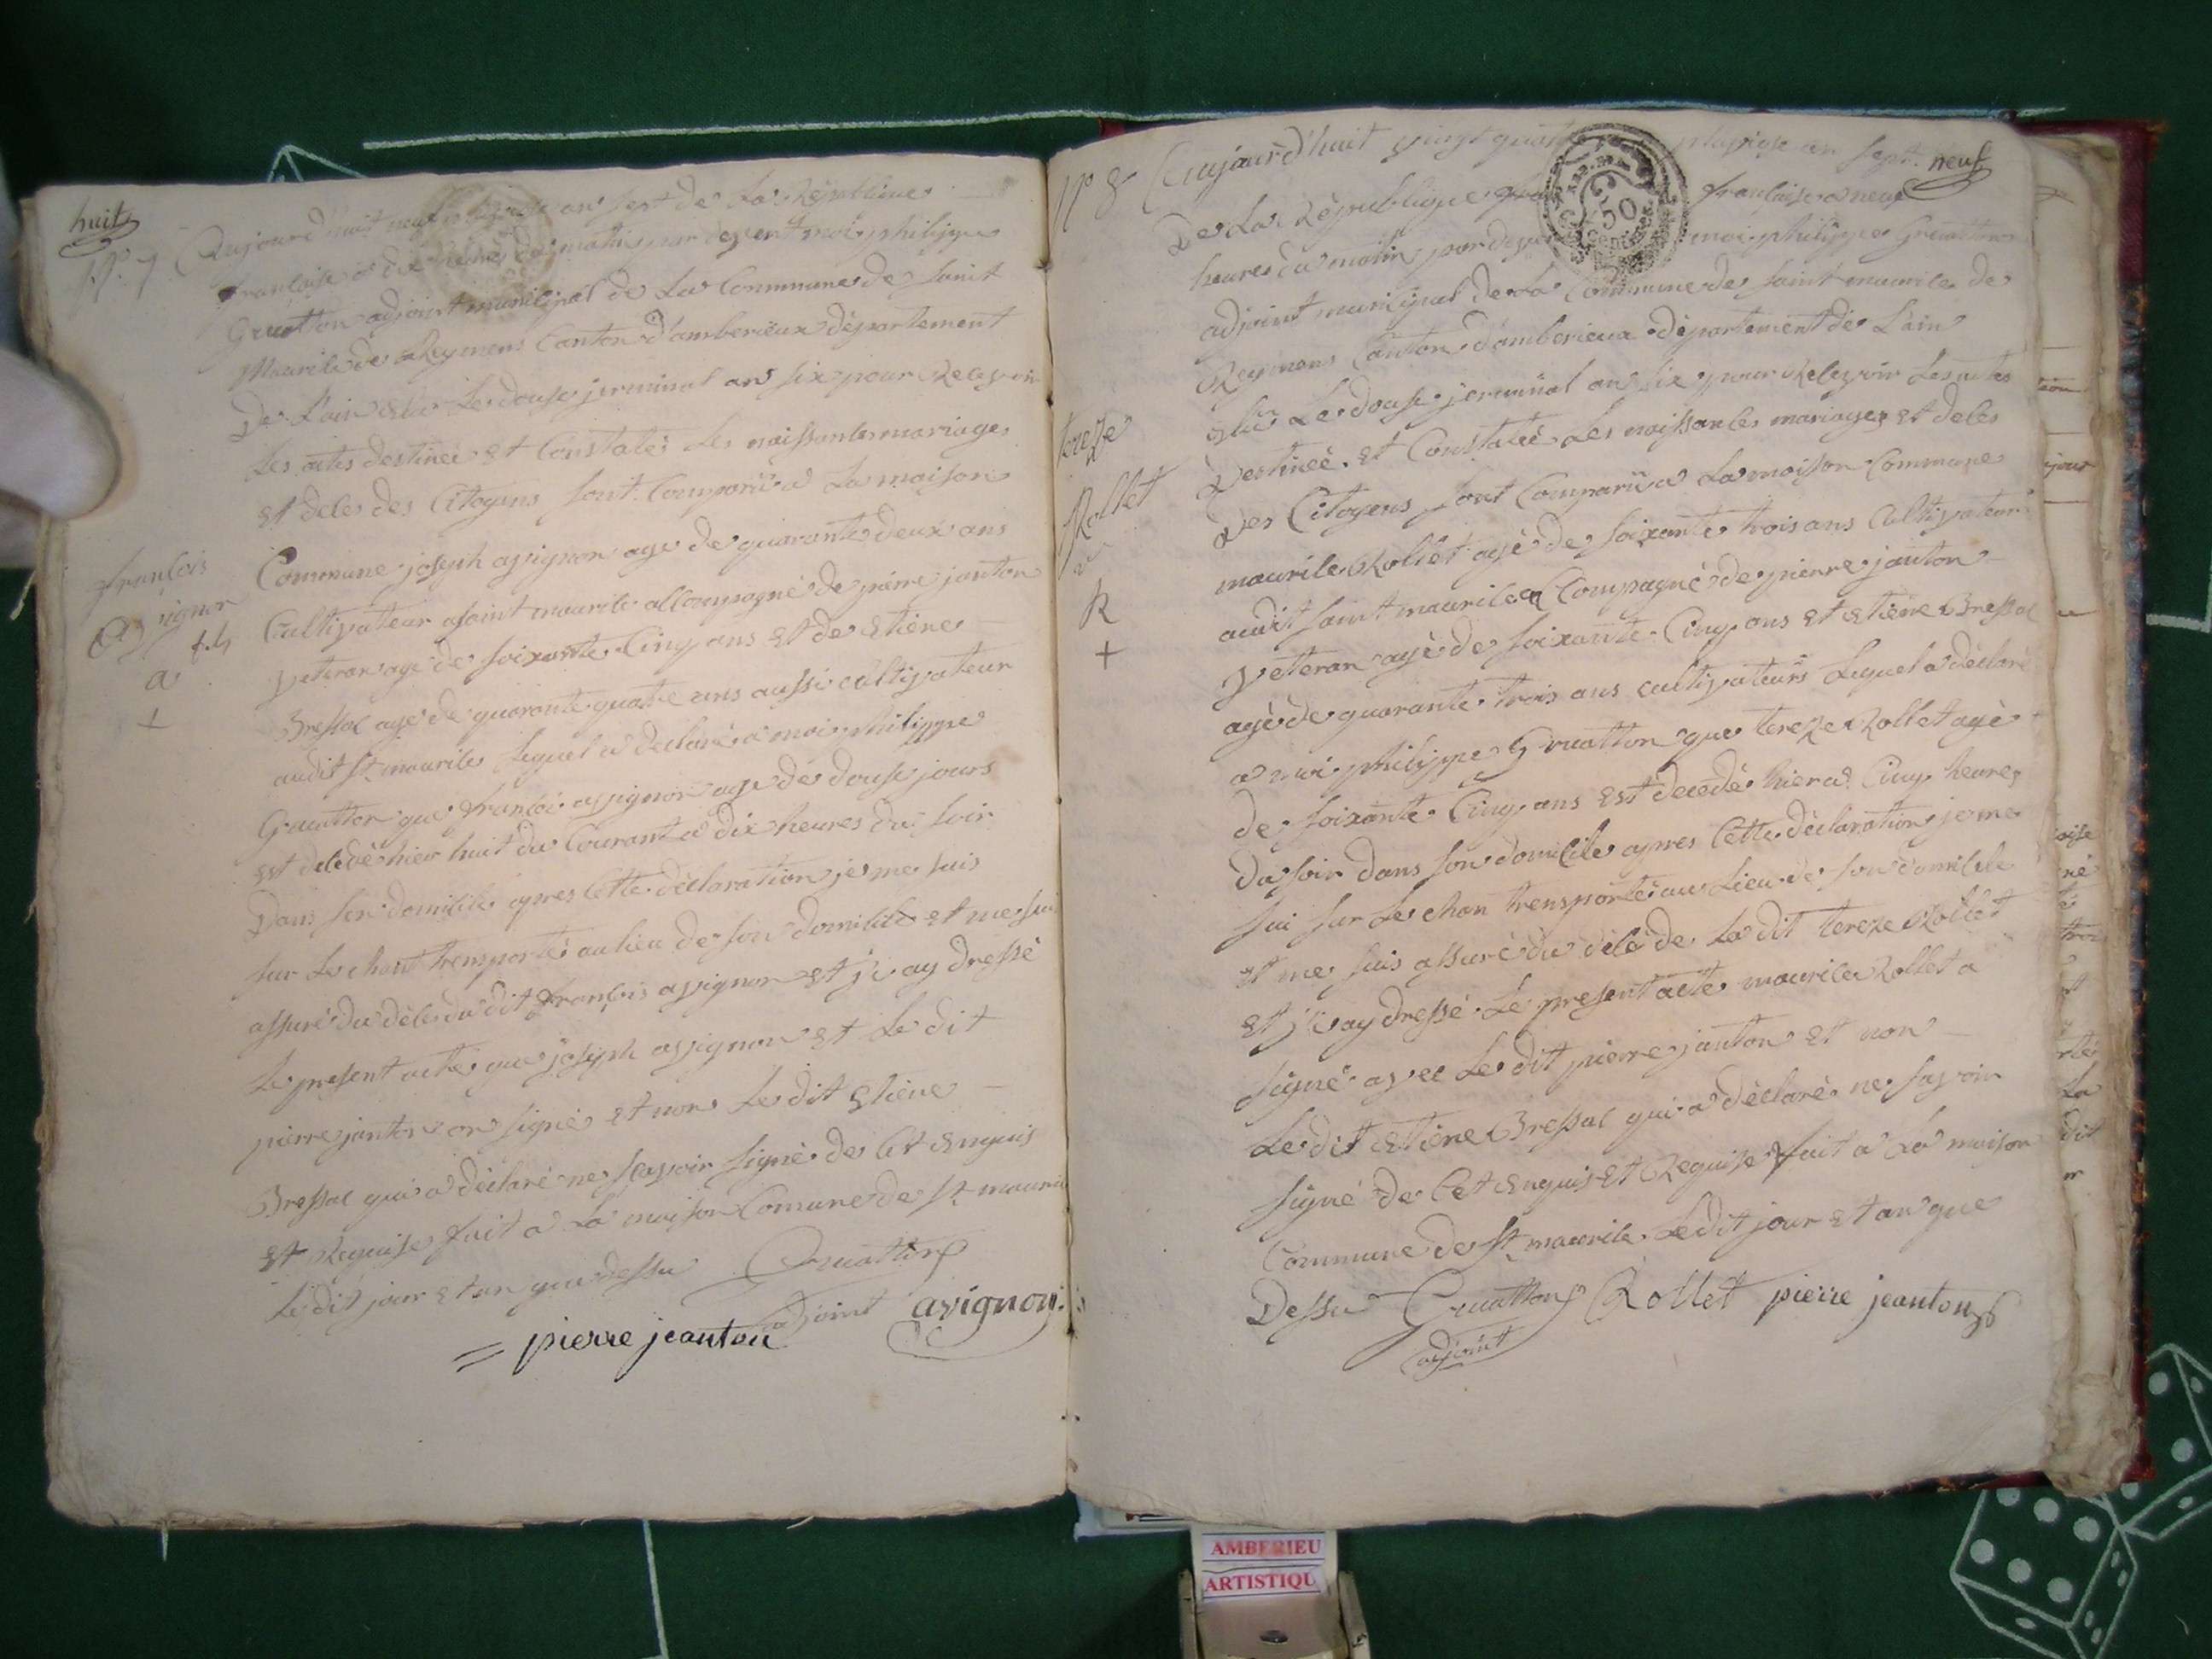 huit
N° 7
Aujourd'huit neuf an sept de La Republique
françaises a dix heures du matin par devent moi philippe
Gruatton adjoint municipal de La Commune de saint
Maurile de Reymens Canton d'amberieux departement
De L'ain elu Le douse jerminal an six pour Recevoir
Les actes destinéé et Constatés Les naissances mariages
et deces des Citoyens sont Comparu a La maison
Commune joseph avignon age de quarante deux ans
Cultivateur a saint maurile accompagné de pierre janton
veteran agé de soixante Cinq ans et de etiene
Bressal agé de quarante quatre ans aussi cultivateur
audit st maurile Lequel a declaré a moi philippe
Gruatton que françoi avignon age de douse jours
est decedé hier huit du Courant a dix heures du soir
Dans son domicile apres Cette déclaration je me suis
sur Le chant trensporté au lieu de son domicile et me sui
assuré du déces du dit françois avignon et j'i ay dressé
Le present acte que joseph avignon et Le dit
pierre janton on signé et non Le dit etiene
Bressal qui a déclaré ne scavoir signé de Cet enquis
et Requise fait a La maison Comune de st mauril
Le dit jour et an que dessu Gruatton
adjoint avignon
= pierre jeanton
françois
avignon
f.h
a
+
neuf
N° 8
aujourd'huit vingt quatre pluviose an sept
De La Republique française a neuf
heures du matin par devent moi philippe Gruatton
adjoint municipal de La Commune de saint maurile de
Reymens Canton d'amberieux departement de L'ain
elu Le douse jerminal an six pour Recevoir Les actes
Destinéé et Constatéé Les naissances mariages et deces
Des Citoyens sont Comparu a La maison Commune
maurile Rollet agé de soixante trois ans Cultivateur
audit saint maurile a Compagné de pierre janton
veteran agé de soixante Cinq ans et etiene Bressal
agé de quarante trois ans cultivateurs Lequel a déclaré
a moi philippe Gruatton que tereze Rollet agé
de soixante Cinq ans est décédé hier a Cinq heures
Du soir dans son domicile apres Cette déclaration je me
sui sur Le chan trensporté au Lieu de son domicile
et me suis assuré du décé de La dit tereze Rollet
et j'i ay dressé Le present acte maurile Rollet a
signé avec Le dit pierre janton et non
Le dit etiene Bressal qui a déclaré ne savoir
signé de Cet enquis et Requise fait a La maison
Commune de st maurile Le dit jour et an que
Dessu Gruatton Rollet pierre jeanton
adjoint
tereze
Rollet
R
+
50
centimes
AMBERIEU
ARTISTIQU